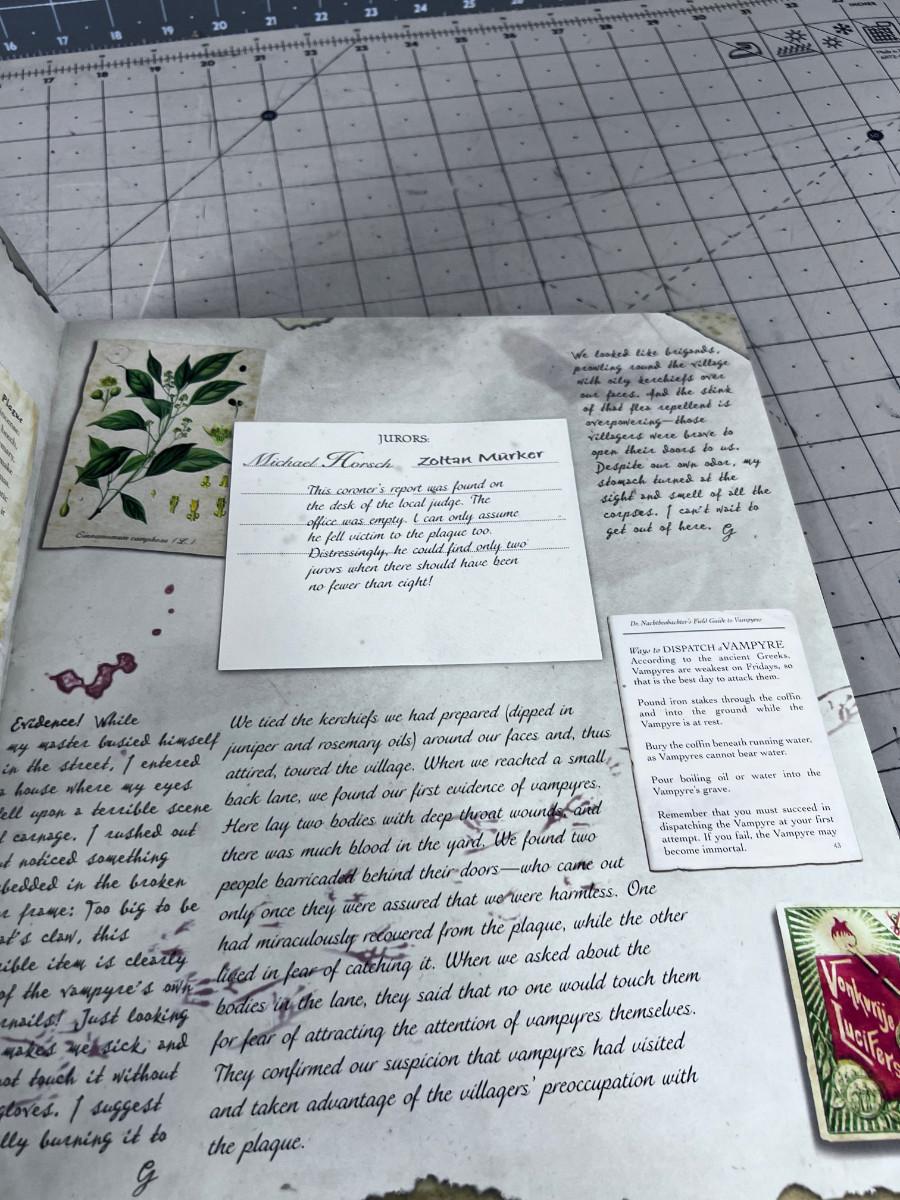 16 17 18 19 20 21 22 23 24 25
17 18 19 20 21 22 23 24 25 26 27 28 29 30 31 32
Plague
Cinnamomum camphora (L.)
JURORS:
Michael Horsch Zoltan Marker
This coroner's report was found on
the desk of the local judge. The
office was empty. I can only assume
he fell victim to the plague too.
Distressingly, he could find only two
jurors when there should have been
no fewer than eight!
We looked like brigands,
prowling round the village
with oily kerchiefs over
our faces. And the stink
of that flea repellent is
overpowering—those
villagers were brave to
open their doors to us.
Despite our own odor, my
stomach turned at the
sight and smell of all the
corpses. I can't wait to
get out of here. G
Dr. Nachtbeobachter's Field Guide to Vampyres
Ways to DISPATCH a VAMPYRE
According to the ancient Greeks,
Vampyres are weakest on Fridays, so
that is the best day to attack them.
Pound iron stakes through the coffin
and into the ground while the
Vampyre is at rest.
Bury the coffin beneath running water,
as Vampyres cannot bear water.
Pour boiling oil or water into the
Vampyre's grave.
Remember that you must succeed in
dispatching the Vampyre at your first
attempt. If you fail, the Vampyre may
become immortal.
43
Evidence! While
my master busied himself
in the street, I entered
a house where my eyes
fell upon a terrible scene
of carnage. I rushed out
noticed something
in the broken
frame: Too big to be
claw, this
item is clearly
of the vampyre's own
Just looking
makes me sick, and
touch it without
gloves. I suggest
burning it to
G
We tied the kerchiefs we had prepared (dipped in
juniper and rosemary oils) around our faces and, thus
attired, toured the village. When we reached a small
back lane, we found our first evidence of vampyres.
Here lay two bodies with deep throat wounds, and
there was much blood in the yard. We found two
people barricaded behind their doors—who came out
only once they were assured that we were harmless. One
had miraculously recovered from the plague, while the other
lived in fear of catching it. When we asked about the
bodies in the lane, they said that no one would touch them
for fear of attracting the attention of vampyres themselves.
They confirmed our suspicion that vampyres had visited
and taken advantage of the villagers' preoccupation with
the plague.
Vonkyrijo
Lucifers